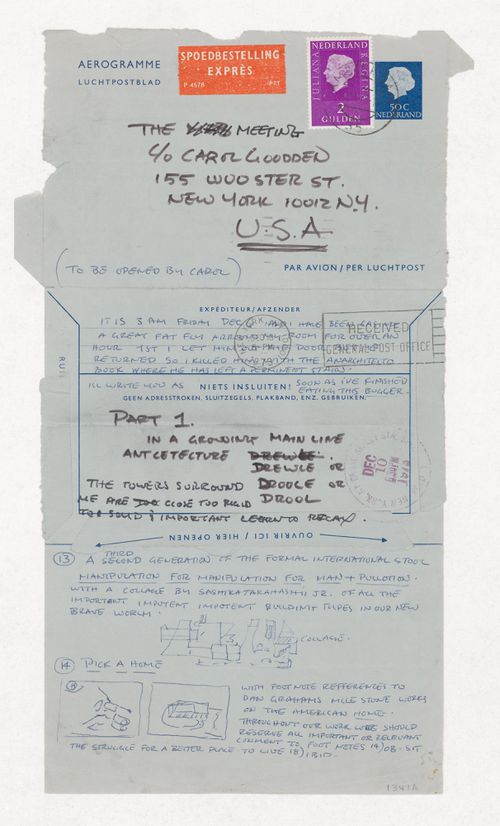 AEROGRAMME
LUCHTPOSTBLAD
SPOEDBESTELLING
EXPRÈS
P 4578
PTT
NEDERLAND
JULIANA
REGINA
2
GULDEN
50C
NEDERLAND
THE MEETING
C/O CAROL GOODDEN
155 WOOSTER ST.
NEW YORK 10012 N.Y.
U.S.A
(TO BE OPENED BY CAROL)
PAR AVION / PER LUCHTPOST
EXPÉDITEUR/AFZENDER
IT IS 3 AM FRIDAY DEC AND I HAVE BEEN
A GREAT FAT FLY AROUND MY ROOM FOR OVER AN
HOUR 1ST I LET HIM OUT THE DOOR BUT HE
RETURNED SO I KILLED HIM WITH THE ANARCHITECTO
BOOK WHERE HE HAS LEFT A PERMINENT STAIN.
ILL WRITE YOU AS SOON AS IVE FINISHED
EATING THIS BUGGER.
RECEIVED
GENERAL POST OFFICE
NIETS INSLUITEN!
GEEN ADRESSTROKEN, SLUITZEGELS, PLAKBAND, ENZ. GEBRUIKEN.
PART 1.
IN A GROWING MAIN LINE
ANTCETECTURE DREWLE.
DREWLE OR
THE TOWERS SURROUND DROOLE OR
ME ARE TOO CLOSE TOO RIGID DROOL
TOO SOLID & IMPORTANT LEARN TO RELAX.
DEC
10
OUVRIR ICI / HIER OPENEN
(13) A THIRD SECOND GENERATION OF THE FORMAL INTERNATIONAL STOOL
MANIPULATION FOR MANIPULATION FOR MAN + PULLOTION.
WITH A COLLAGE BY TAKAHASHI JR. OF ALL THE
IMPORTANT IMPOTENT IMPOTENT BUILDIMIT TYPES IN OUR NEW
BRAVE WORLM.
COLLAGE.
(14) PICK A HOME
WITH FOOT NOTE REFFERENCES TO
DAN GRAHAMS MILE STONE WORKS
ON THE AMERICAN HOME.
THROUGHOUT OUR WORK WE SHOULD
RESERVE ALL IMPORTANT OR RELEVANT
COMMENT TO FOOT NOTES OB. SIT
THE STRUGGLE FOR A BETTER PLACE TO LIVE IBID.